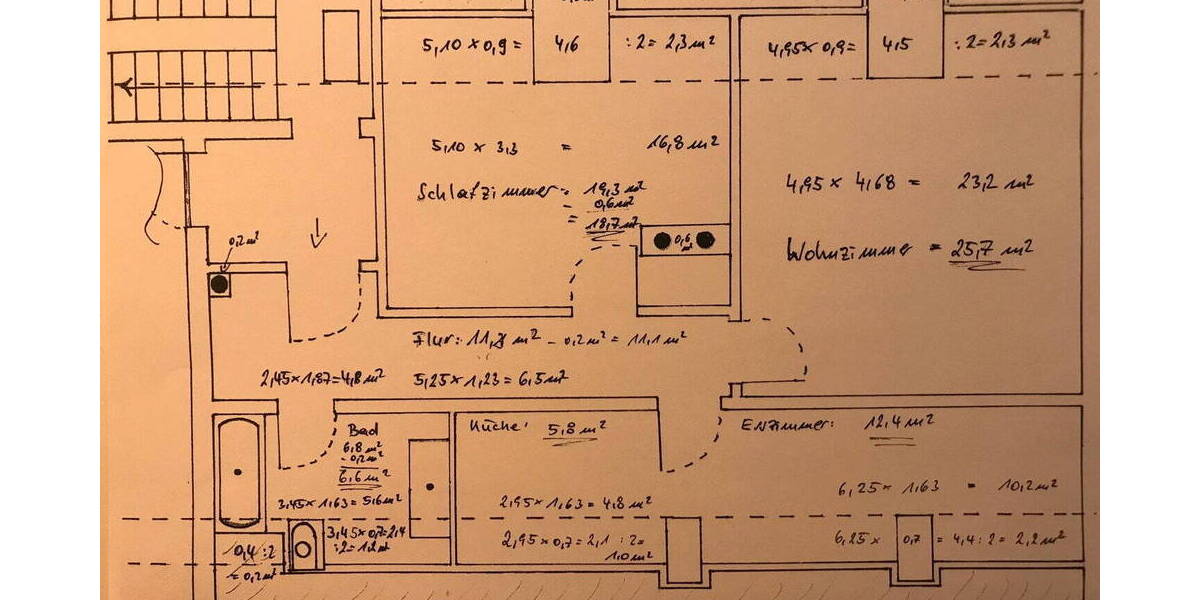 5,10 x 0,9 = 4,6 :2 = 2,3 m²
4,95 x 0,9 = 4,5 :2 = 2,3 m²
5,10 x 3,3 = 16,8 m²
Schlafzimmer = 19,3 m²
- 0,6 m²
= 18,7 m²
0,6 m²
4,95 x 4,68 = 23,2 m²
Wohnzimmer = 25,7 m²
0,2 m²
Flur: 11,3 m² - 0,2 m² = 11,1 m²
2,45 x 1,87 = 4,8 m²
5,25 x 1,23 = 6,5 m²
Bad
6,8 m²
- 0,2 m²
6,6 m²
3,45 x 1,63 = 5,6 m²
3,45 x 0,7 = 2,4
:2 = 1,2 m²
0,4 :2
= 0,2 m²
Küche: 5,8 m²
2,95 x 1,63 = 4,8 m²
2,95 x 0,7 = 2,1 :2 =
1,0 m²
Eßzimmer: 12,4 m²
6,25 x 1,63 = 10,2 m²
6,25 x 0,7 = 4,4 :2 = 2,2 m²